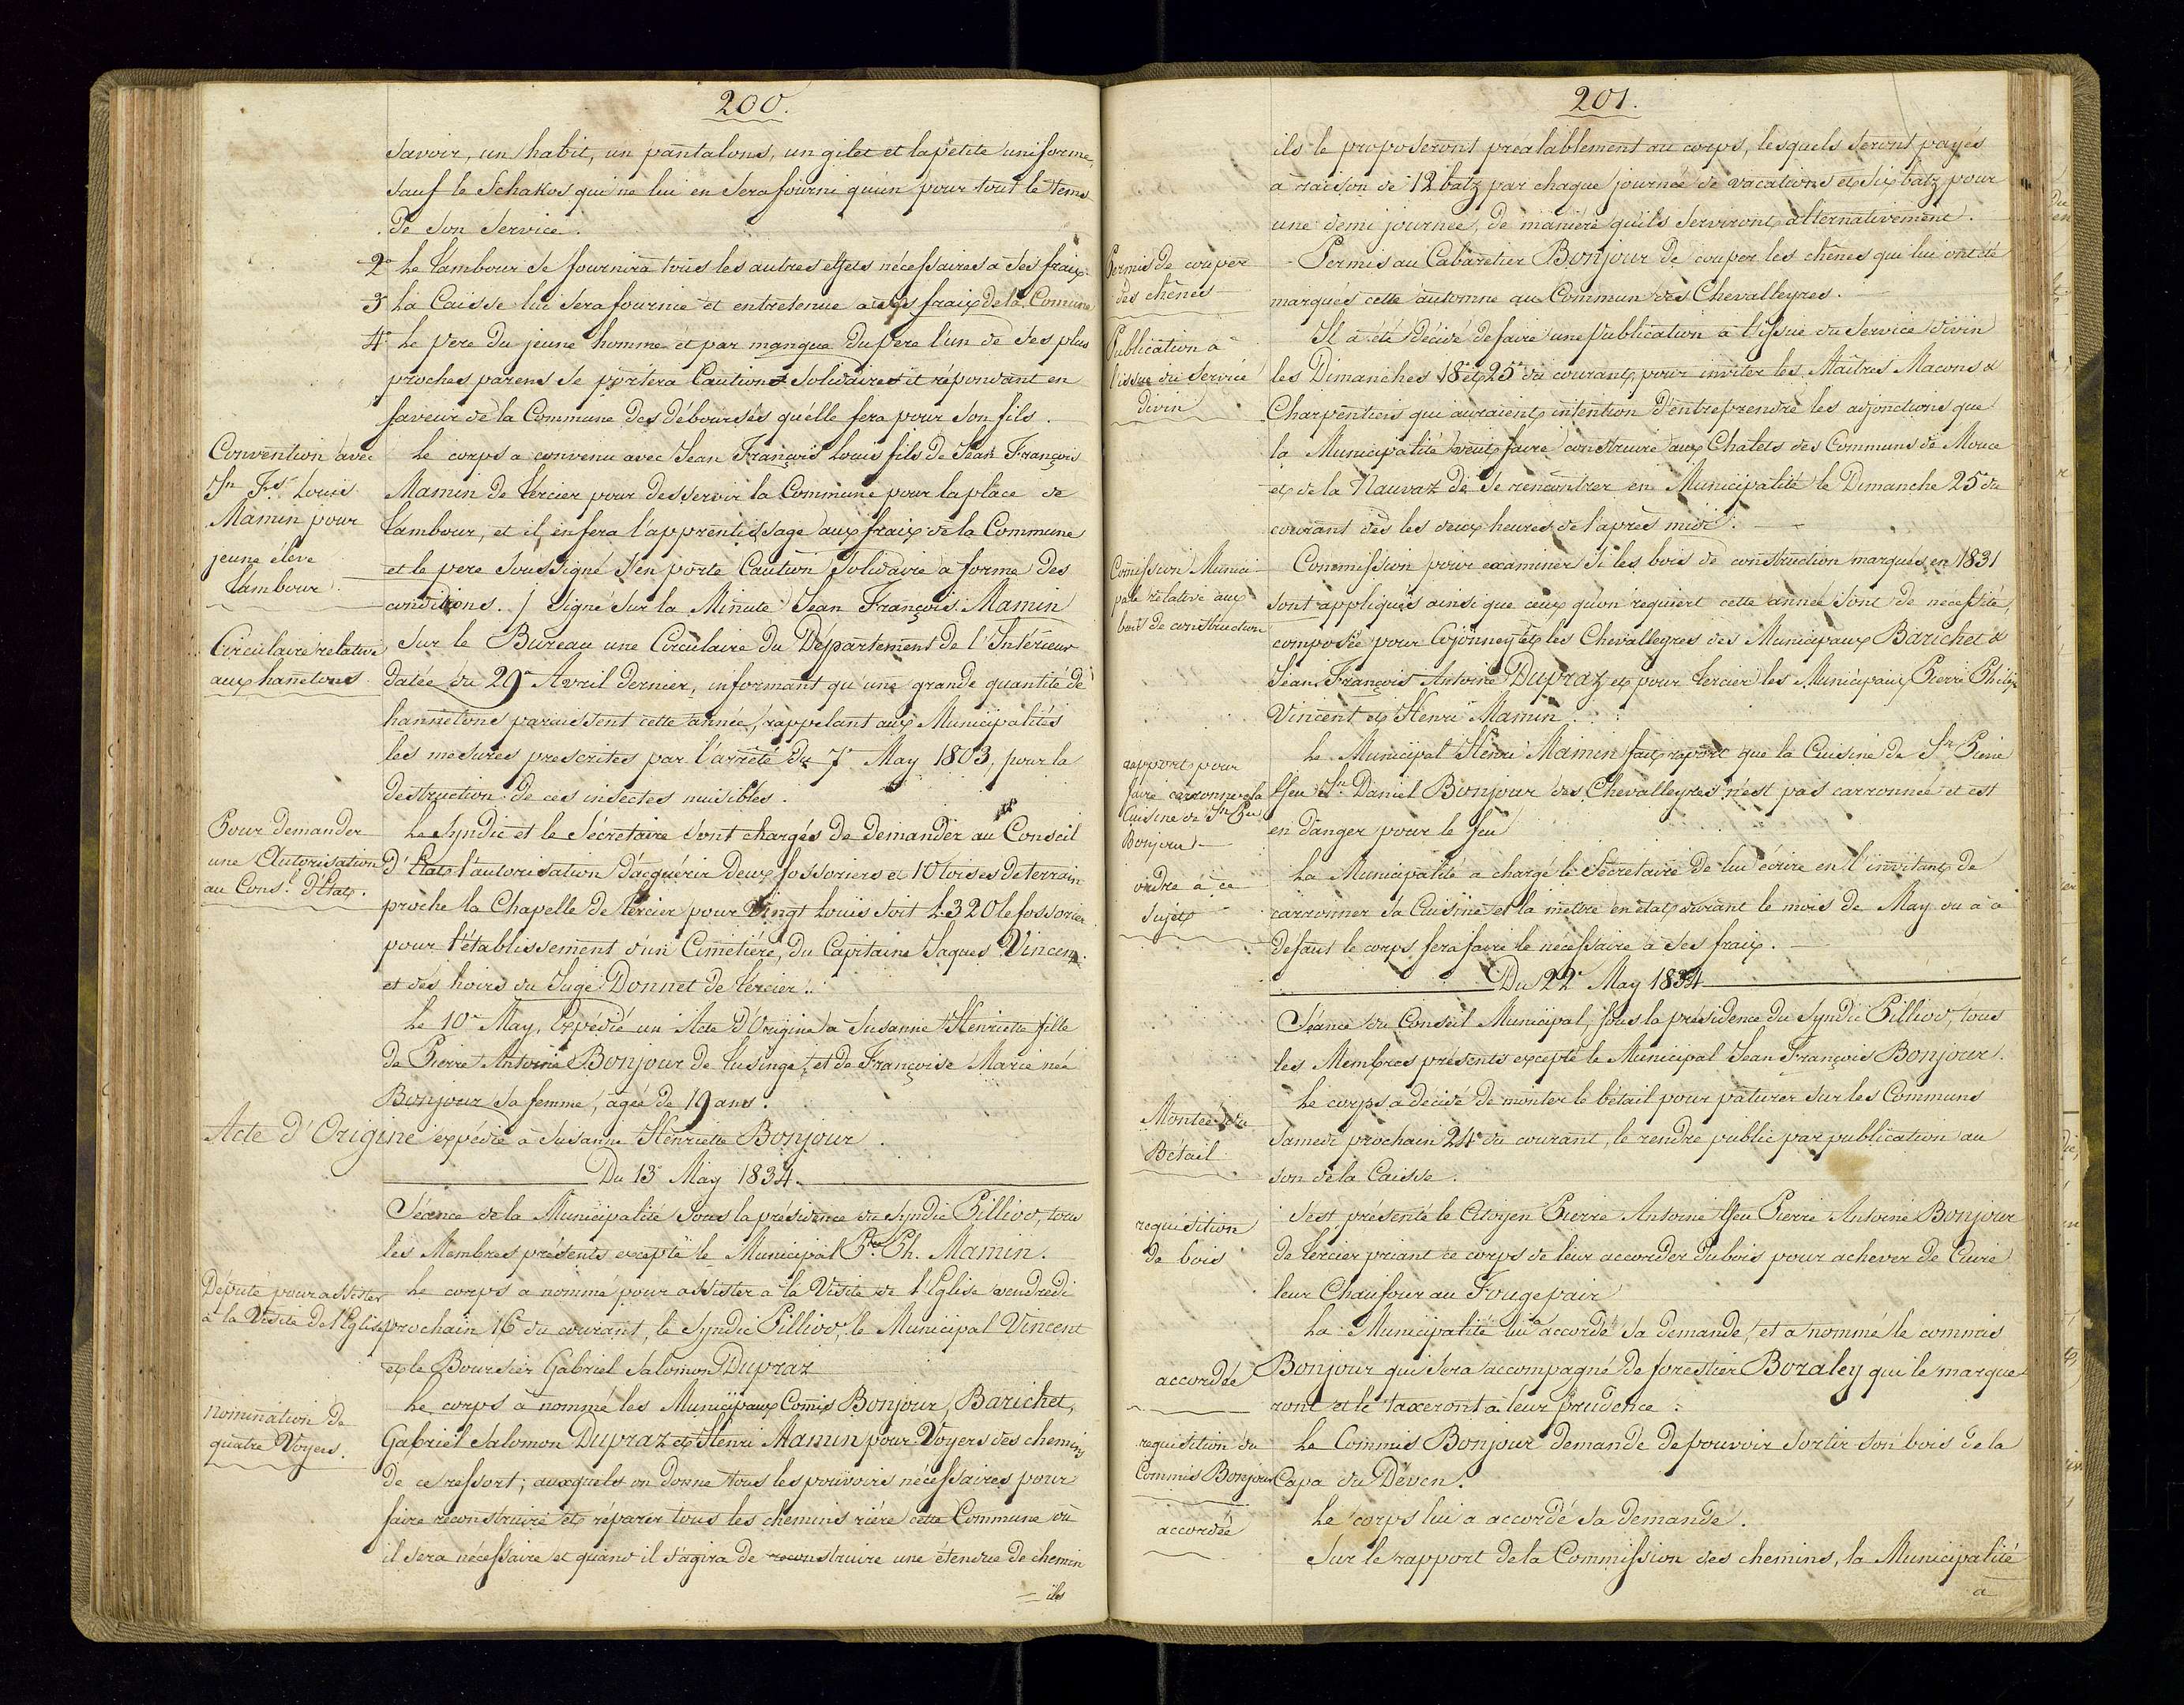 200.
savoir, un habit, un pantalons, un gilet et la petite uniforme,
sauf le Schakos qui ne lui en sera fourni qu'un pour tout le tems
de son service.
2° Le tambour se fournira tous les autres effets nécessaires à ses fraix.
3° La Caisse lui sera fournie et entretenue aux fraix de la Comune
4° Le père du jeune homme et par manque du père l'un de ses plus
proches parens se portera Caution solidaire et répondant en
faveur de la Commune des déboursés qu'élle fera pour son fils.
Convention avec
Jn Fs Louis
Mamin pour
jeune éléve
tambour.
Le corps a convenu avec Jean François Louis fils de Jean François
Mamin de Tercier pour desservir la Commune pour la place de
tambour, et il en fera l'apprentissage aux fraix de la Commune
et le père soussigné s'en porte Caution solidaire à forme des
conditions. / Signé sur la Minute Jean François Mamin
Circulaire relative
aux hanetons
Sur le Bureau une Circulaire du Département de l'Intérieur
datée du 29e Avril dernier, informant qu'une grande quantité de
hannetons paraissent cette année, rappelant aux Municipalités
les mesures prescrites par l'arrêté du 7e May 1803, pour la
destruction de ces insectes nuisibles.
Pour demander
une Autorisation
au Cons.l d'Etat.
Le Syndic et le Sécretaire sont chargés de demander au Conseil
d'Etat l'autorisation d'acquérir deux fossoriers et 10 toises de terrain
proche la Chapelle de Tercier pour Vingt Louis soit L. 320 le fossorier
pour l'établissement d'un Cimetière, du Capitaine Jaques Vincent
et des hoirs du Juge Donnet de Tercier.
Le 10e May, Expédié un Acte d'Origine à Susanne Henriette fille
de Pierre Antoine Bonjour de Lusinge, et de Françoise Marie née
Bonjour sa femme, agée de 19 ans.
Acte d'Origine expédié à Susanne Henriette Bonjour.
Du 13e May 1834.
Séance de la Municipalité sous la présidence du Syndic Pilliod, tous
les Membres présents excepté le Municipal Pre Ph. Mamin.
Député pour assister
à la Visite de l'Eglise
Le corps a nommé pour assister à la Visite de l'Eglise vendredi
prochain 16e du courant, le Syndic Pilliod, le Municipal Vincent
et le Boursier Gabriel Salomon Dupraz
nomination de
quatre Voyers.
Le corps à nommé les Municipaux Comis Bonjour, Barichet,
Gabriel Salomon Dupraz et Henri Mamin pour Voyers des chemins
de ce ressort; auxquels on donne tous les pouvoirs nécessaires pour
faire reconstruire et réparer tous les chemins rière cette Commune où
il sera nécessaire et quand il s'agira de reconstruire une étendue de chemin
ils
201.
ils le proposeront préalablement au corps, lesquels seront payés
à raison de 12 batz par chaque journée de vacations et six batz pour
une demi journée, de manière qu'ils serviront alternativement.
Permis de couper
des chênes
Permis au Cabaretier Bonjour de couper les chênes qui lui ont été
marqués cette automne au Commun des Chevalleyres.
Publication à
l'issue du Service
divin
Il a été décidé de faire une publication à l'issue du Service divin
les Dimanches 18 et 25e du courant, pour inviter les Maîtres Maçons &
Charpentiers qui auraient intention d'entreprendre les adjonctions que
la Municipalité veut faire construire aux Chalets des Communs de Mouce
et de la Nauvaz de se rencontrer en Municipalité le Dimanche 25e du
courant dès les deux heures de l'après midi.
Comission Munici-
pale relative aux
bois de construction
Commission pour examiner si les bois de construction marqués en 1831
sont appliqués ainsi que ceux qu'on requiert cette année sont de nécessité,
composée pour Cojonney et les Chevalleyres des Municipaux Barichet &
Jean François Antoine Dupraz et pour Tercier les Municipaux Pierre Philip
Vincent et Henri Mamin.
rapport pour
faire carronner la
Cuisine de Jn Pre
Bonjour
Le Municipal Henri Mamin fait raport que la Cuisine de Jn Pierre
ffeu Jn Daniel Bonjour des Chevalleyres n'est pas carronnée et est
en danger pour le feu
ordre à ce
sujet
La Municipalité a chargé le Sécretaire de lui écrire en l'invitant de
carronner sa Cuisine et la mettre en état durant le mois de May ou à
défaut le corps fera faire le nécessaire à ses fraix.
Du 22e May 1834
Séance du Conseil Municipal, sous la présidence du Syndic Pilliod, tous
les Membres présents excepté le Municipal Jean François Bonjour.
Montée du
Bétail
Le corps a décidé de monter le bétail pour paturer sur les Communs
Samedi prochain 24e du courant, le rendre public par publication au
son de la Caisse.
requisition
de bois
S'est présenté le Citoyen Pierre Antoine ffeu Pierre Antoine Bonjour
de Tercier priant ce corps de leur accorder du bois pour achever de Cuire
leur Chaufour au Fougepair
accordée
La Municipalité lui a accordé sa demande, et a nommé le commis
Bonjour qui sera accompagné de forestier Boraley qui le marque-
ront et le taxeront à leur prudence.
requisition du
Commis Bonjour
Le Commis Bonjour demande de pouvoir sortir son bois de la
Capa du Deven.
accordée
Le corps lui a accordé sa demande.
Sur le rapport de la Commission des chemins, la Municipalité
a